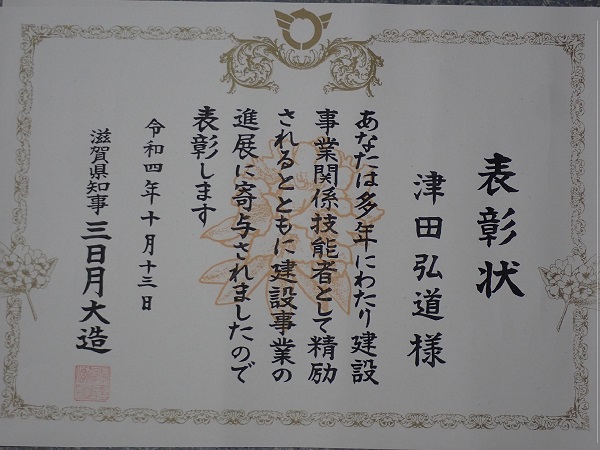 表彰状
津田弘道様
あなたは多年にわたり建設
事業関係技能者として精励
されるとともに建設事業の
進展に寄与されましたので
表彰します
令和四年十月十三日
滋賀県知事 三日月大造